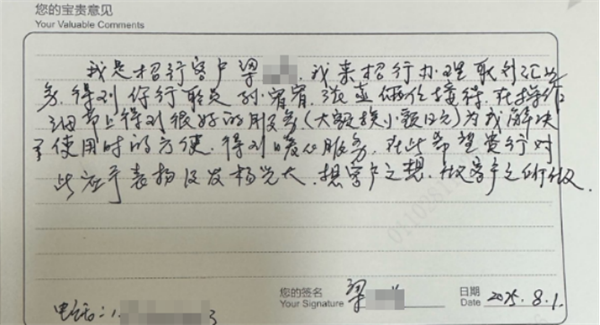 您的宝贵意见
Your Valuable Comments
我是招行客户梁 我来招行办理取外汇业
务,得到你行职员 孙宥宥,张 两位接待,在操作
细节上得到很好的服务(大额换小额日元)为我解决
了使用时的方便,得到暖心服务,在此希望贵行对
此 予表扬及发扬光大,想客户之想,做客户之所做
您的签名 梁 日期 2025.8.1.
Your Signature Date
电话:1 3